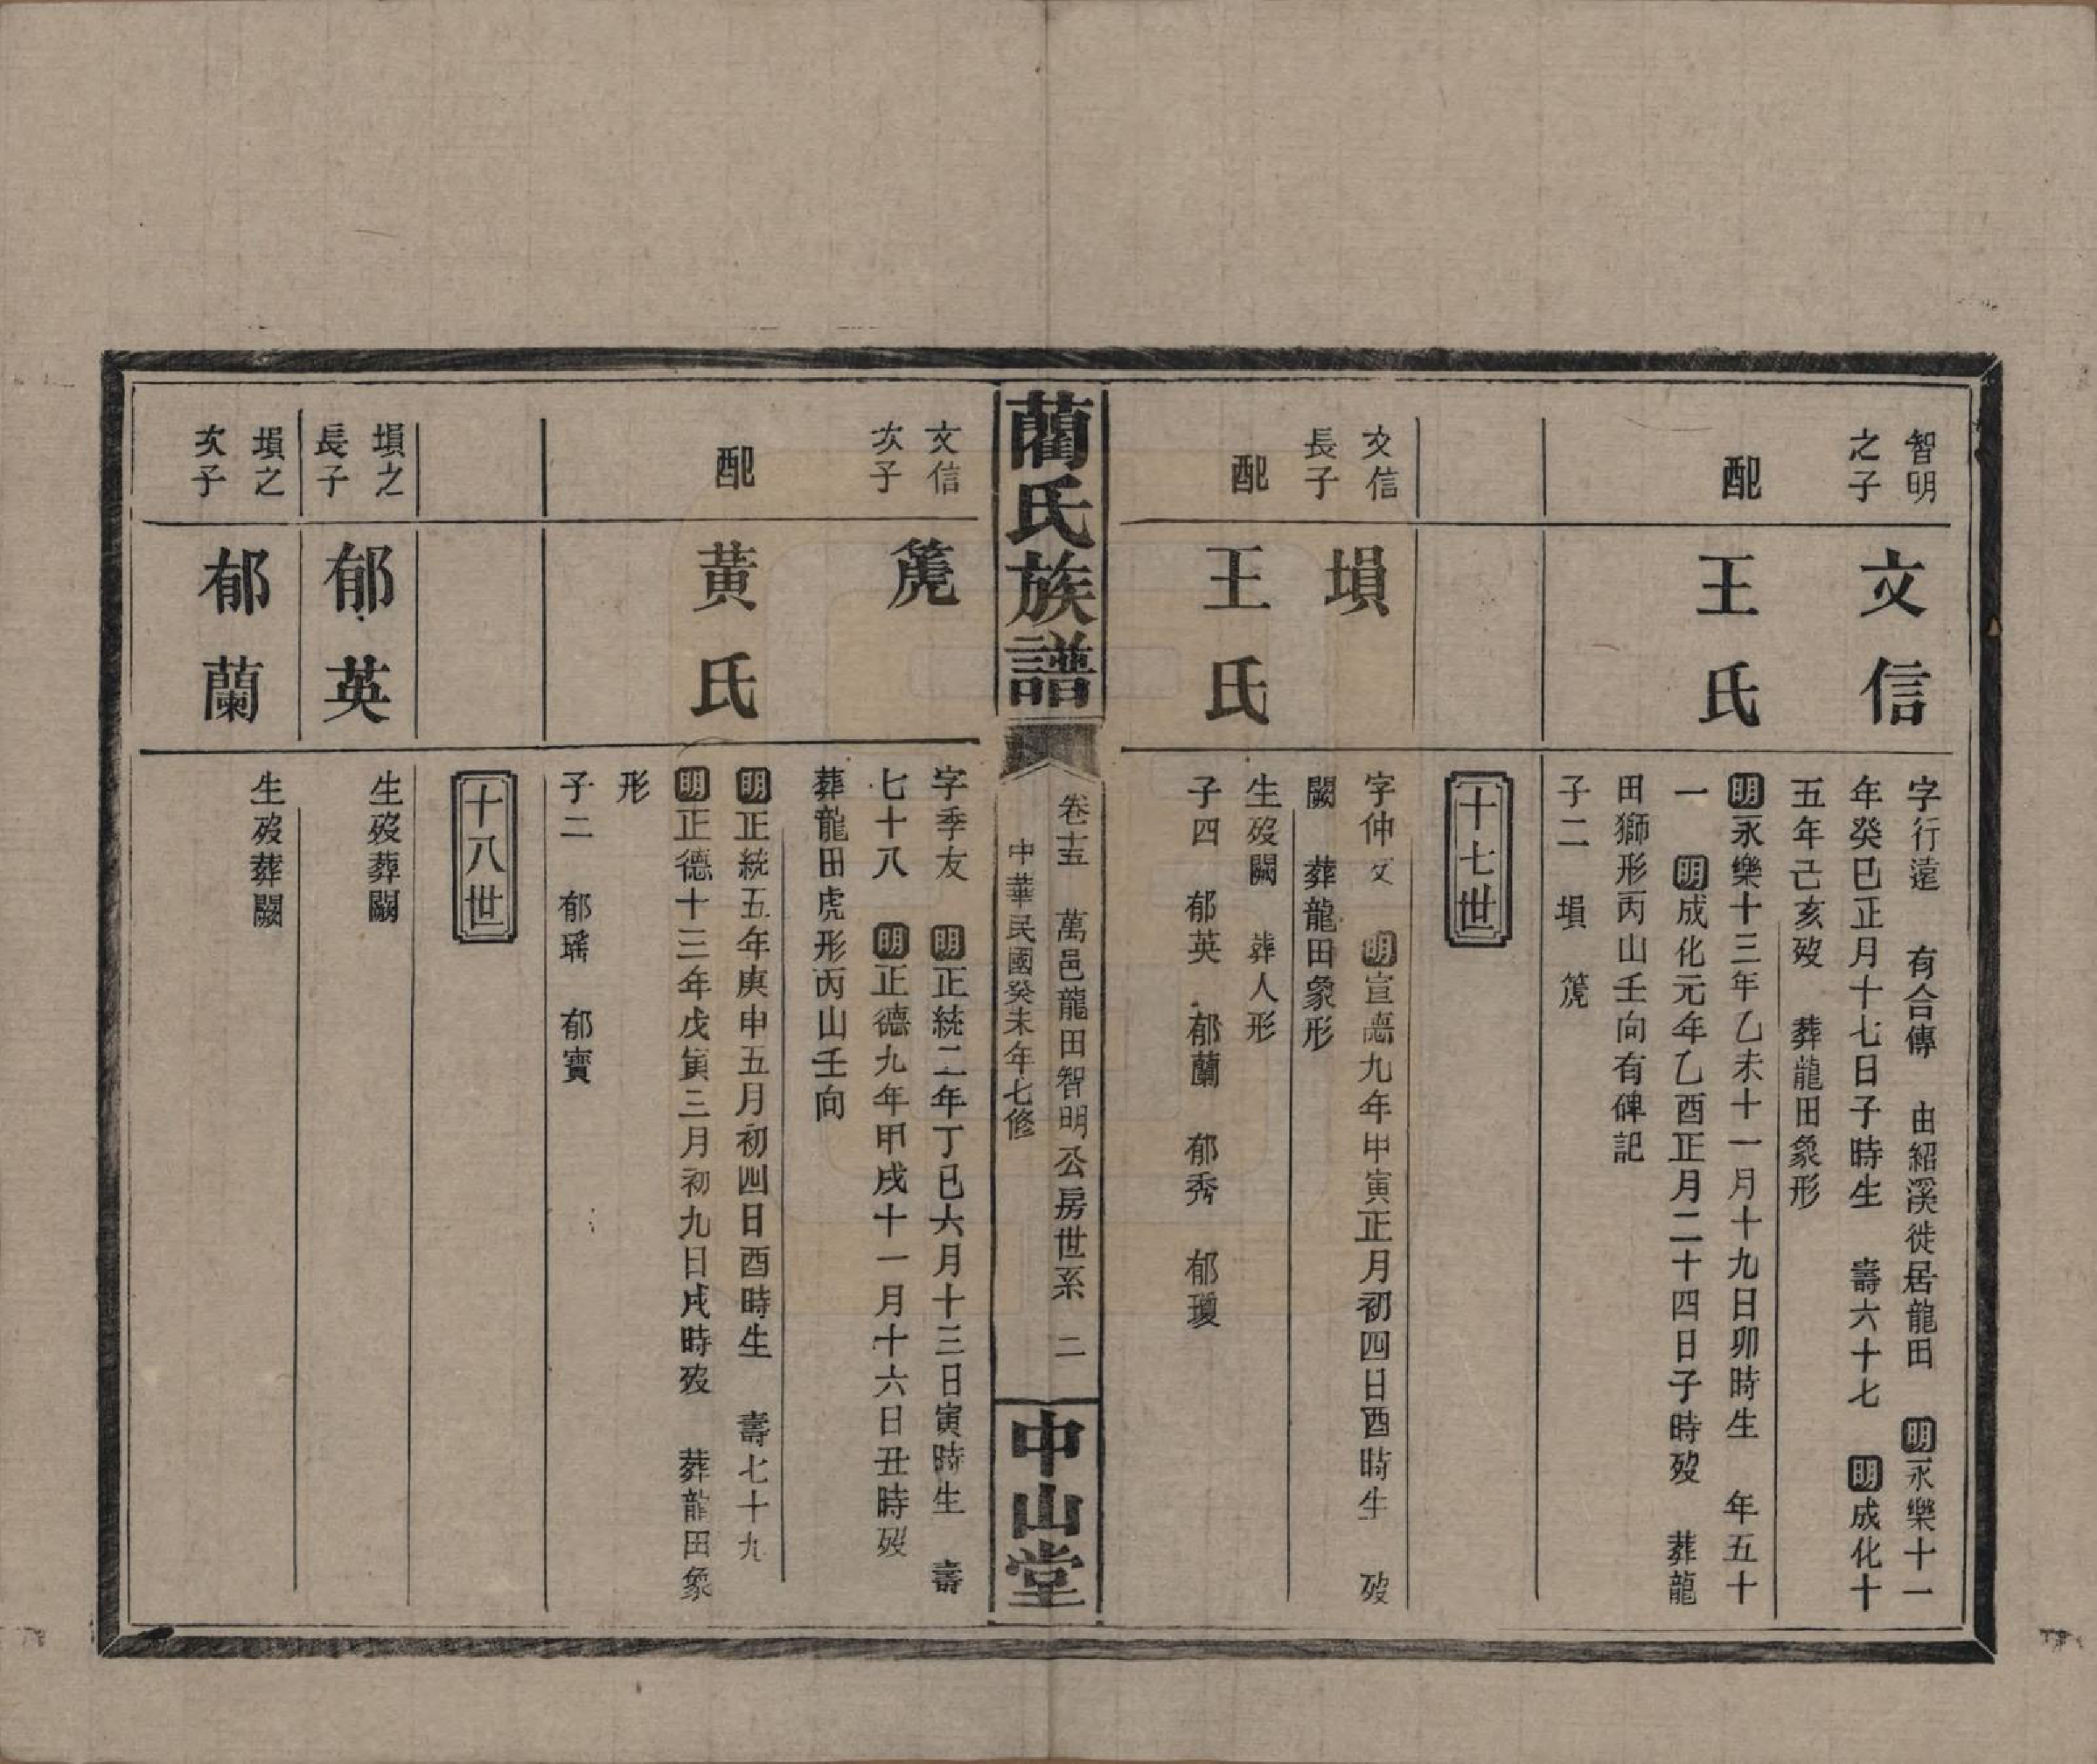 智明
之子
文信
字行遠　有合傳　由紹溪徙居龍田　明永樂十一
年癸巳正月十七日子時生　壽六十七　明成化十
五年己亥歿　葬龍田象形
配
王氏
明永樂十三年乙未十一月十九日卯時生　年五十
一　明成化元年乙酉正月二十四日子時歿　葬龍
田獅形丙山壬向有碑記
子二　塤　篪
十七世
文信
長子
塤
字仲文　明宣德九年甲寅正月初四日酉時生　歿
闕　葬龍田象形
配
王氏
生歿闕　葬人形
子四　郁英　郁蘭　郁秀　郁瓊
藺氏族譜
卷十五　萬邑龍田智明公房世系　二
中華民國癸未年七修
中山堂
文信
次子
篪
字季友　明正統二年丁巳六月十三日寅時生　壽
七十八　明正德九年甲戌十一月十六日丑時歿
葬龍田虎形丙山壬向
配
黃氏
明正統五年庚申五月初四日酉時生　壽七十九
明正德十三年戊寅三月初九日戌時歿　葬龍田象
形
子二　郁瑤　郁寶
十八世
塤之
長子
郁英
生歿葬闕
塤之
次子
郁蘭
生歿葬闕